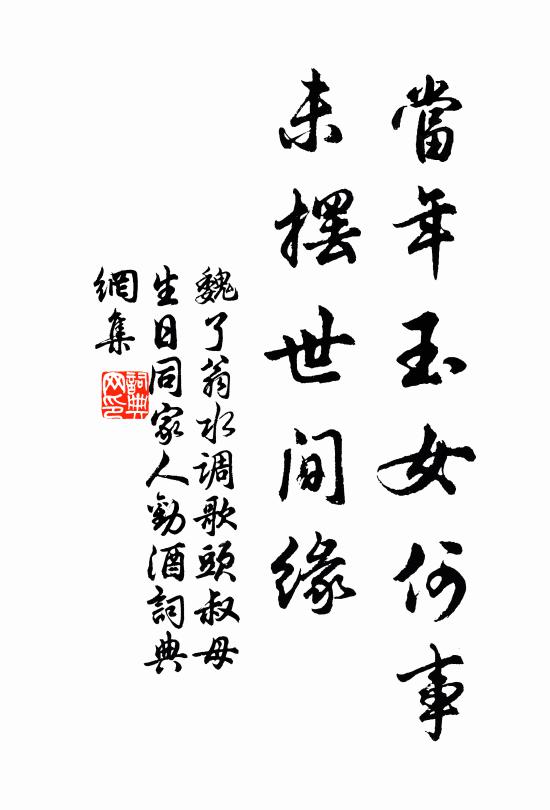 當年玉女何事
未擺世間緣
魏了翁水调歌頭叔母
生日同家人勸酒詞典
網集
詞典
网印